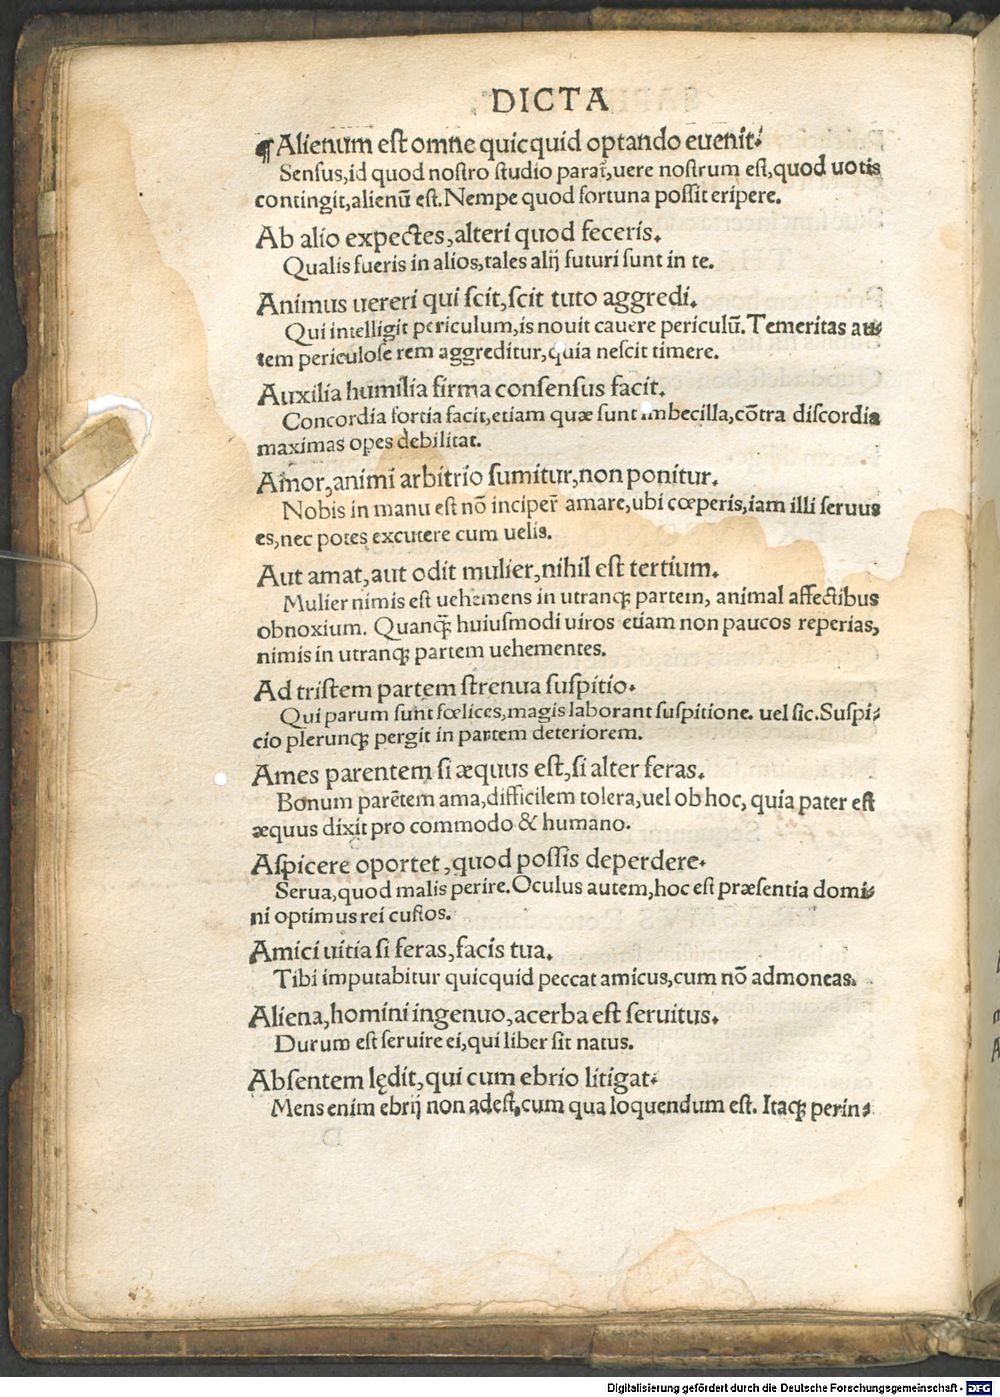 DICTA
¶Alienum est omne quicquid optando euenit.
Sensus,id quod nostro studio parat᷑,uere nostrum est,quod uotis
contingit,alienū est.Nempe quod fortuna possit eripere.
Ab alio expectes,alteri quod feceris.
Qualis fueris in alios,tales alij futuri sunt in te.
Animus uereri qui scit,scit tuto aggredi.
Qui intelligit periculum,is nouit cauere periculū.Temeritas au-
tem periculose rem aggreditur,quia nescit timere.
Auxilia humilia firma consensus facit.
Concordia fortia facit,etiam quæ sunt imbecilla,cōtra discordia
maximas opes debilitat.
Amor,animi arbitrio sumitur,non ponitur.
Nobis in manu est nō inciper᷑ amare,ubi cœperis,iam illi seruus
es,nec potes excutere cum uelis.
Aut amat,aut odit mulier,nihil est tertium.
Mulier nimis est uehemens in utranqꝫ partem, animal affectibus
obnoxium. Quanqꝫ̃ huiusmodi uiros etiam non paucos reperias,
nimis in utranqꝫ partem uehementes.
Ad tristem partem strenua suspitio.
Qui parum sunt fœlices,magis laborant suspitione. uel sic.Suspi-
cio plerunqꝫ pergit in partem deteriorem.
Ames parentem si æquus est,si alter feras.
Bonum parētem ama,difficilem tolera,uel ob hoc, quia pater est
æquus dixit pro commodo & humano.
Aspicere oportet,quod possis deperdere.
Serua,quod malis perire.Oculus autem,hoc est præsentia domi-
ni optimus rei custos.
Amici uitia si feras,facis tua.
Tibi imputabitur quicquid peccat amicus,cum nō admoneas.
Aliena,homini ingenuo,acerba est seruitus.
Durum est seruire ei,qui liber sit natus.
Absentem lędit,qui cum ebrio litigat.
Mens enim ebrij non adest,cum qua loquendum est. Itaqꝫ perin-
Digitalisierung gefördert durch die Deutsche Forschungsgemeinschaft - DFG